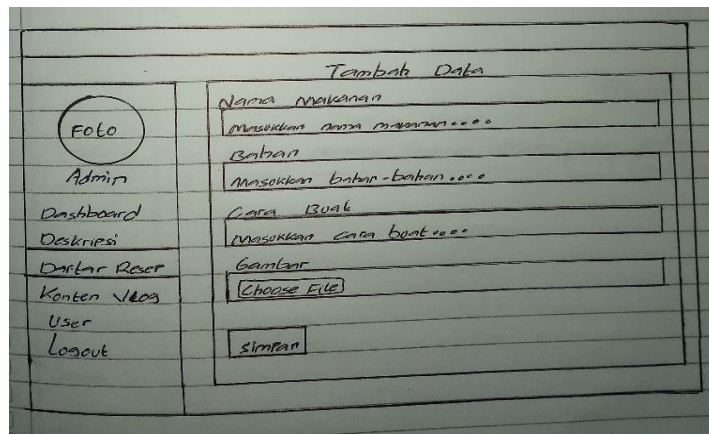 Foto
Admin
Dashboard
Deskripsi
Daftar Resep
Konten Vlog
User
Logout
Tambah Data
Nama Makanan
Masukkan nama makanan....
Bahan
Masukkan bahan-bahan....
Cara Buat
Masukkan cara buat....
Gambar
Choose File
Simpan